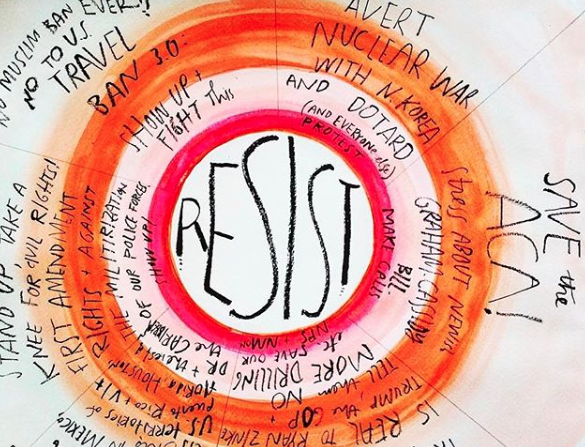 RESIST
NO MUSLIM BAN EVER!
NO TO U.S.
TRAVEL
BAN 3.0:
SHOW UP +
FIGHT this
AVERT
NUCLEAR WAR
WITH N. KOREA
AND DOTARD
(AND EVERYONE else)
PROTEST
SAVE the
ACA!
Stress ABOUT NEWER
GRAHAM, CASSIDY
BILL:
MAKE CALLS
IS REAL
TRUMP, the GOP +
TELL them
TO RYAN ZINKE
NO
MORE DRILLING
etc SAVE OUR
NPS + NMON
MEXICO,
US territories of
Puerto Rico + VI +
FLORIDA HOUSTON,
DR + the rest of
the CARIBBEAN
STAND UP TAKE A
KNEE FOR CIVIL RIGHTS!
FIRST AMENDMENT
RIGHTS + AGAINST
THE MILITIRIZATION
OF OUR POLICE FORCES,
SHOW UP!